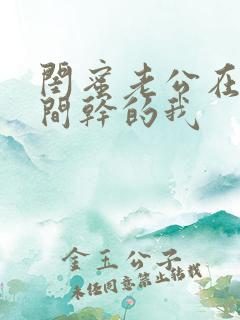 閨蜜老公在
間幹的我
金玉公子
未经同意禁止转载